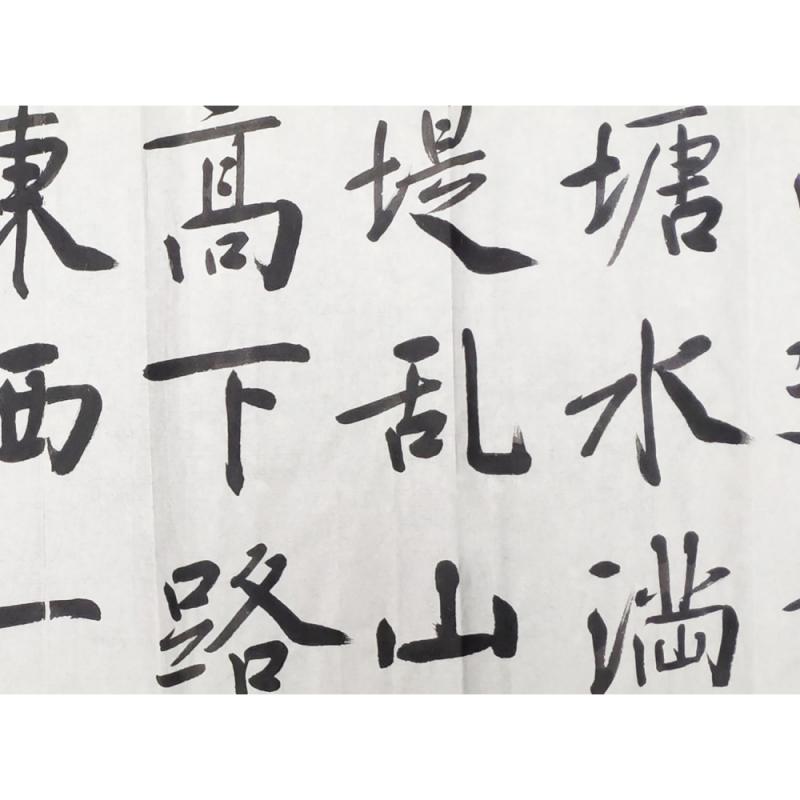 塘水滿
堤乱山
高下路
東西一